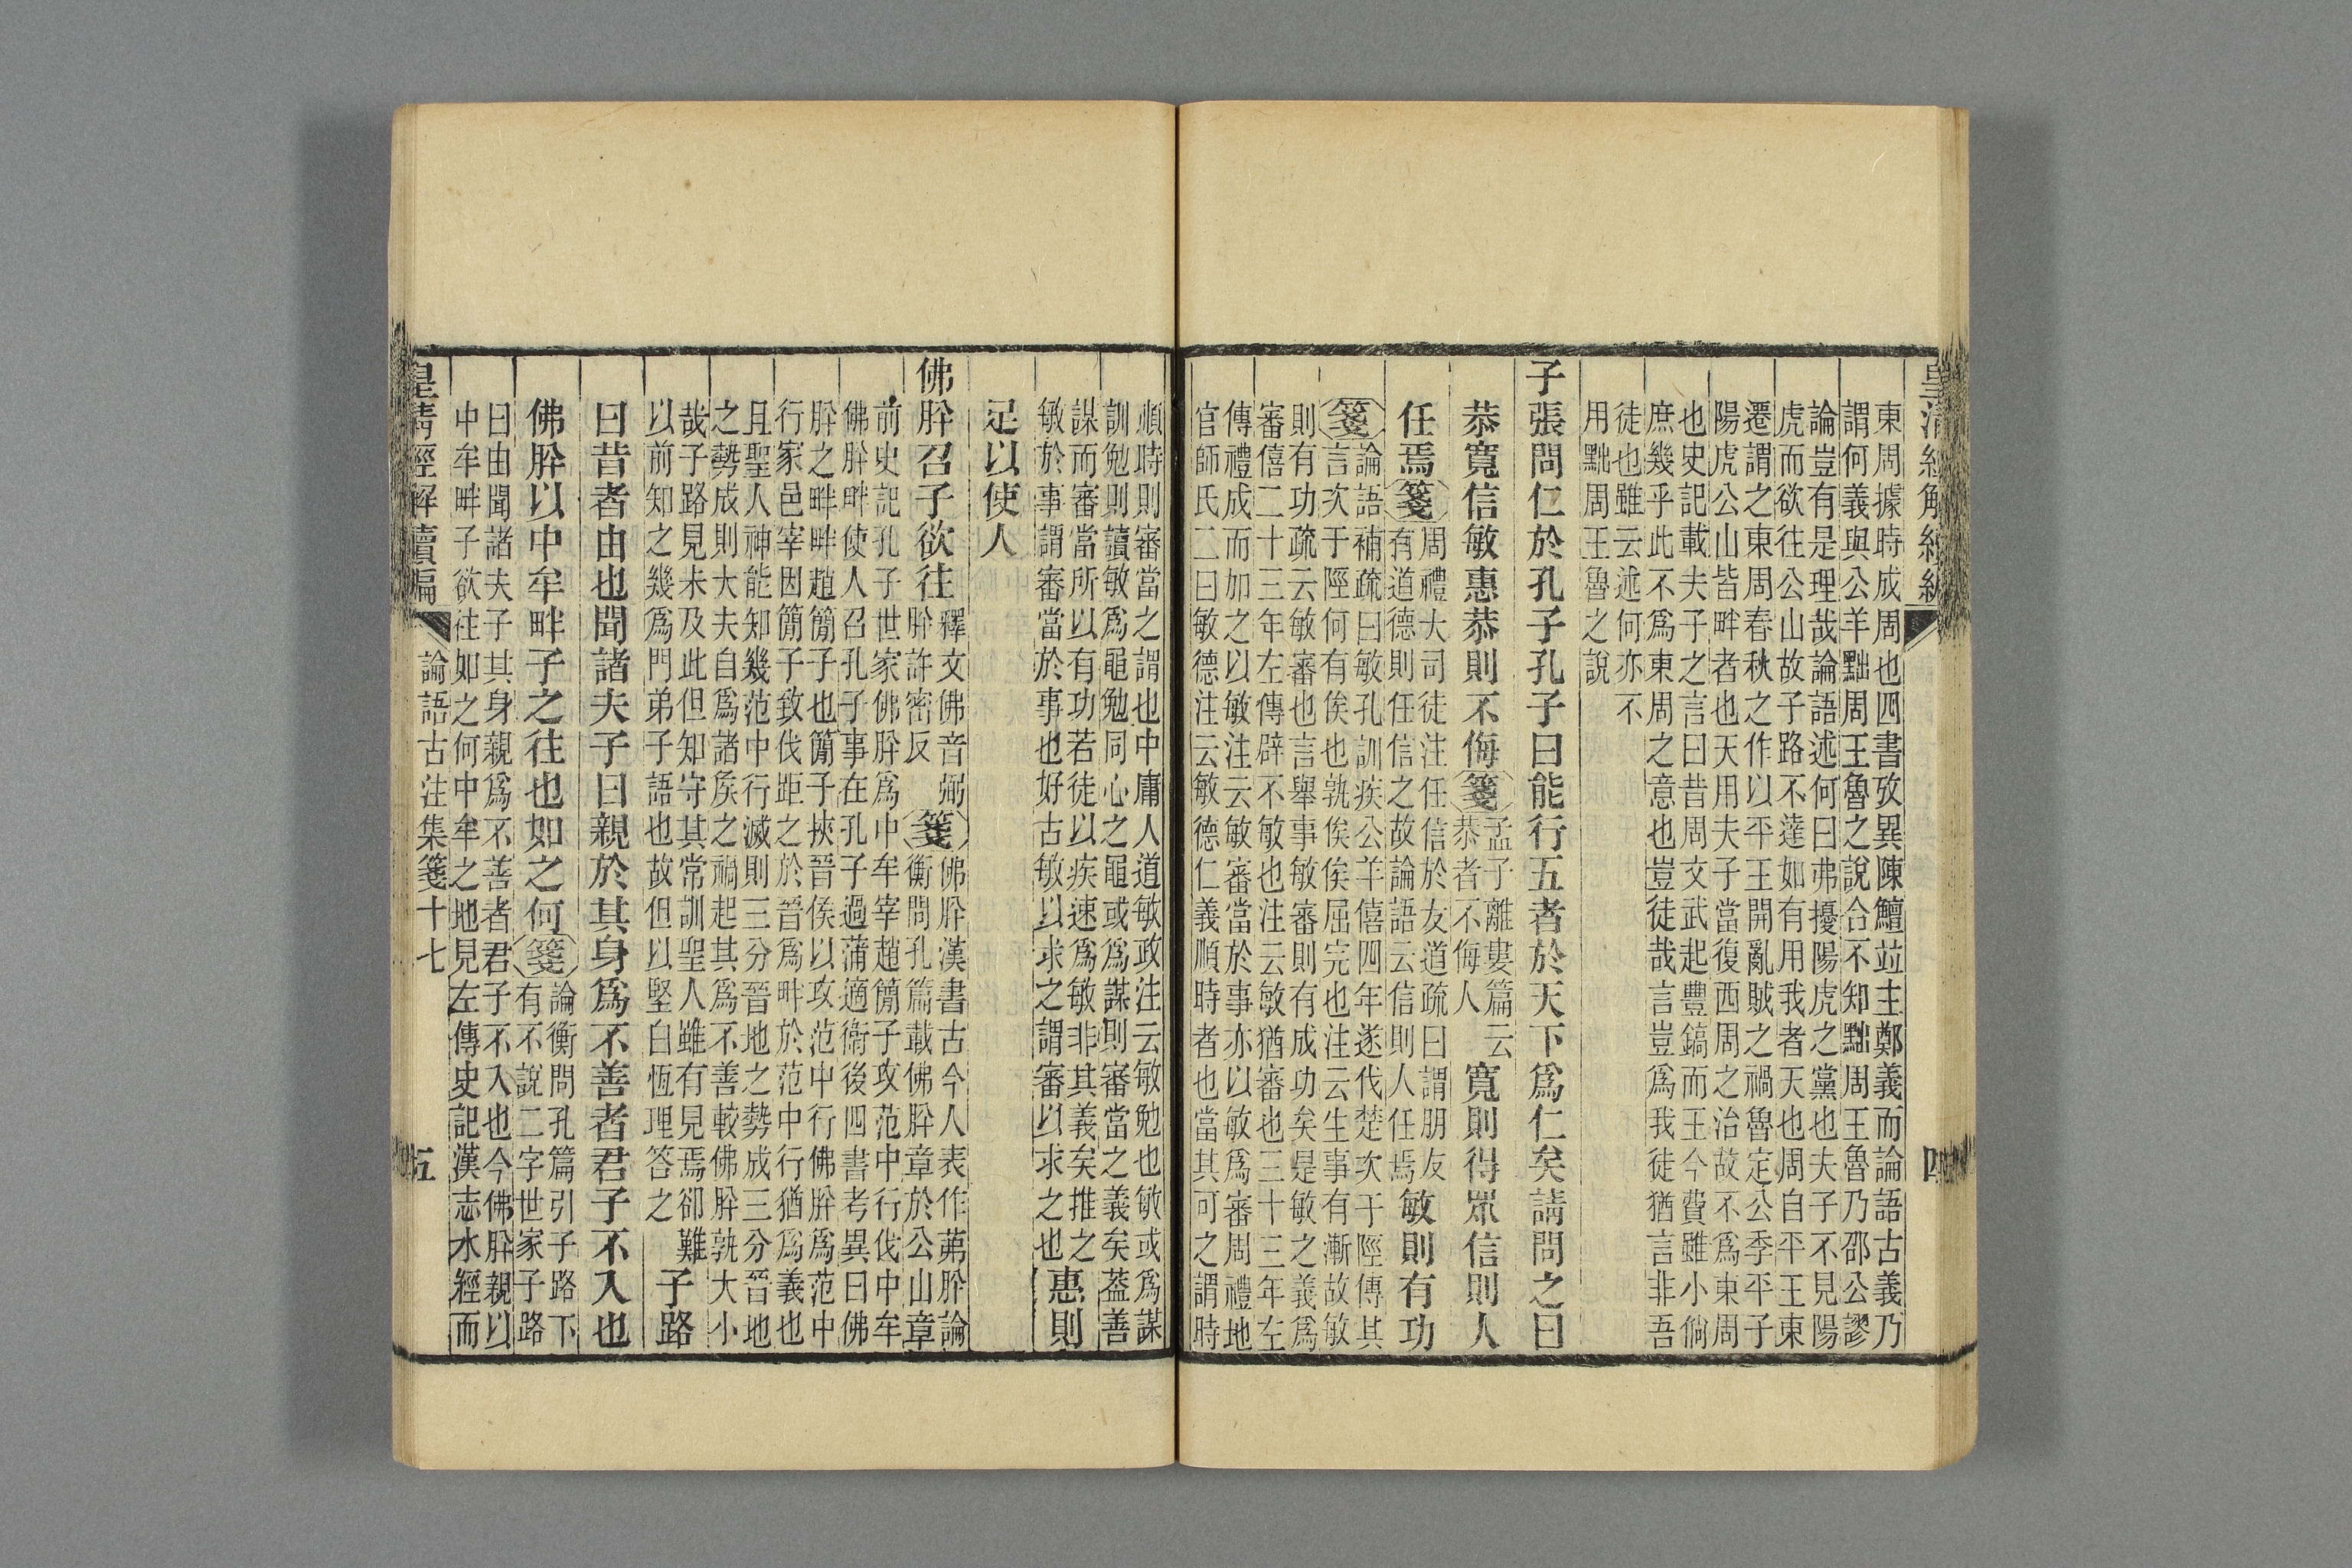 東周據時成周也四書攷異陳鱣竝主鄭義而論語古義乃
謂何義與公羊黜周王魯之說合不知黜周王魯乃邵公謬
論豈有是理哉論語述何曰弗擾陽虎之黨也夫子不見陽
虎而欲往公山故子路不達如有用我者天也周自平王東
遷謂之東周春秋之作以平王開亂賊之禍魯定公季平子
陽虎公山皆畔者也天用夫子當復西周之治故不為東周
也史記載夫子之言曰昔周文武起豐鎬而王今費雖小倘
庶幾乎此不為東周之意也豈徒哉言豈為我徒猶言非吾
徒也雖云述何亦不
用黜周王魯之說
子張問仁於孔子孔子曰能行五者於天下爲仁矣請問之曰
恭寬信敏惠恭則不侮
箋
孟子離婁篇云
恭者不侮人
寬則得眾信則人
任焉
箋
周禮大司徒注任信於友道疏曰謂朋友
有道德則任信之故論語云信則人任焉
敏則有功
箋
論語補疏曰敏孔訓疾公羊僖四年遂伐楚次于陘傳其
言次于陘何有俟也孰俟俟屈完也注云生事有漸故敏
則有功疏云敏審也言舉事敏審則有成功矣是敏之義爲
審僖二十三年左傳辟不敏也注云敏猶審也三十三年左
傳禮成而加之以敏注云敏審當於事亦以敏爲審周禮地
官師氏二曰敏德注云敏德仁義順時者也當其可之謂時
順時則審當之謂也中庸人道敏政注云敏勉也敏或爲謀
訓勉則讀敏爲黽勉同心之黽或爲謀則審當之義矣蓋善
謀而審當所以有功若徒以疾速爲敏非其義矣推之
敏於事謂審當於事也好古敏以求之謂審以求之也
惠則
足以使人
佛肸召子欲往
釋文佛音弼
肸許密反
箋
佛肸漢書古今人表作茀肸論
衡問孔篇載佛肸章於公山章
前史記孔子世家佛肸爲中牟宰趙簡子攻范中行伐中牟
佛肸畔使人召孔子事在孔子過蒲適衞後四書考異曰佛
肸之畔畔趙簡子也簡子挾晉侯以攻范中行佛肸爲范中
行家邑宰因簡子致伐距之於晉爲畔於范中行猶爲義也
且聖人神能知幾范中行滅則三分晉地之勢成三分晉地
之勢成則大夫自爲諸矦之禍起其爲不善較佛肸孰大小
哉子路見未及此但知守其常訓聖人雖有見焉卻難
以前知之幾爲門弟子語也故但以堅白恆理答之
子路
曰昔者由也聞諸夫子曰親於其身爲不善者君子不入也
佛肸以中牟畔子之往也如之何
箋
論衡問孔篇引子路下
有不說二字世家子路
曰由聞諸夫子其身親爲不善者君子不入也今佛肸親以
中牟畔子欲往如之何中牟之地見左傳史記漢志水經而
皇清經解續編
論語古注集箋十七
五